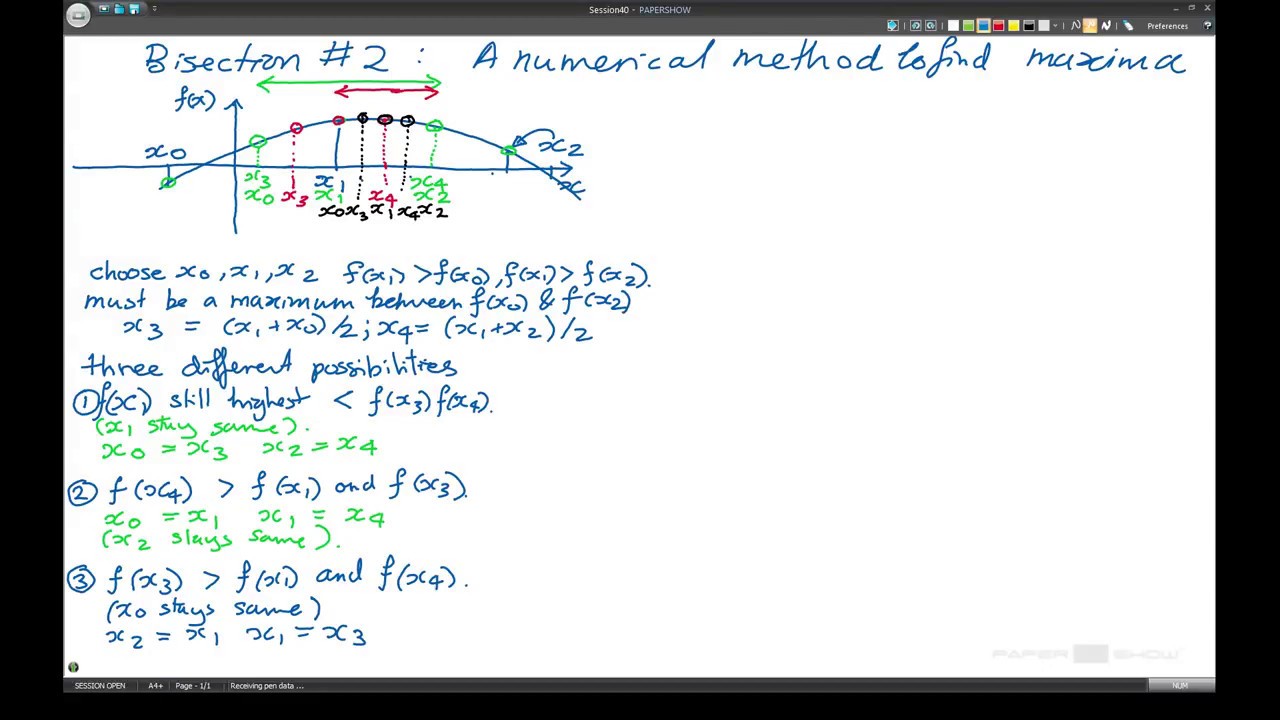 Session40 - PAPERSHOW
Preferences
Bisection #2 : A numerical method to find maxima
f(x)
x0 x2
x3 x1 x4 x
x0 x3 x1 x4 x2
x0 x3 x1 x4 x2
choose x0, x1, x2 f(x1) > f(x0), f(x1) > f(x2).
must be a maximum between f(x0) & f(x2)
x3 = (x1+x0)/2; x4 = (x1+x2)/2
three different possibilities
① f(x1) still highest < f(x3) f(x4).
(x1 stay same).
x0 = x3 x2 = x4
② f(x4) > f(x1) and f(x3).
x0 = x1 x1 = x4
(x2 stays same).
③ f(x3) > f(x1) and f(x4).
(x0 stays same)
x2 = x1 x1 = x3
PAPER SHOW
SESSION OPEN A4+ Page - 1/1 Receiving pen data ... NUM